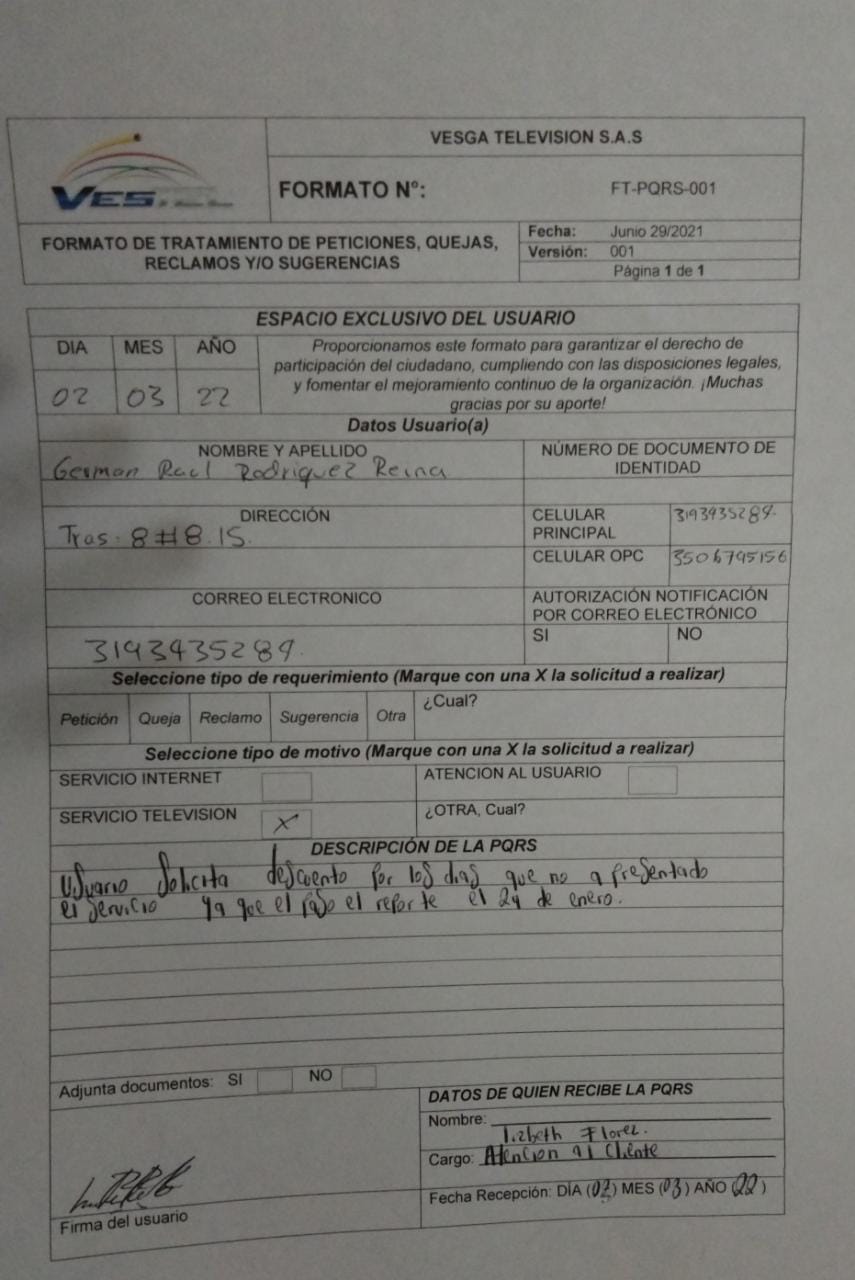 VESTEL
VESGA TELEVISION S.A.S
FORMATO N°: FT-PQRS-001
FORMATO DE TRATAMIENTO DE PETICIONES, QUEJAS,
RECLAMOS Y/O SUGERENCIAS
Fecha: Junio 29/2021
Versión: 001
Página 1 de 1
ESPACIO EXCLUSIVO DEL USUARIO
DIA MES AÑO
02 03 22
Proporcionamos este formato para garantizar el derecho de
participación del ciudadano, cumpliendo con las disposiciones legales,
y fomentar el mejoramiento continuo de la organización. ¡Muchas
gracias por su aporte!
Datos Usuario(a)
NOMBRE Y APELLIDO
German Raul Rodriguez Reina
NÚMERO DE DOCUMENTO DE
IDENTIDAD
DIRECCIÓN
Tras. 8#8.15.
CELULAR
PRINCIPAL
3193935289.
CELULAR OPC 3506795156
CORREO ELECTRONICO
3193935289.
AUTORIZACIÓN NOTIFICACIÓN
POR CORREO ELECTRÓNICO
SI NO
Seleccione tipo de requerimiento (Marque con una X la solicitud a realizar)
Petición Queja Reclamo Sugerencia Otra ¿Cual?
Seleccione tipo de motivo (Marque con una X la solicitud a realizar)
SERVICIO INTERNET ATENCION AL USUARIO
SERVICIO TELEVISION X ¿OTRA, Cual?
DESCRIPCIÓN DE LA PQRS
Usuario Solicita descuento por los dias que no a presentado
el servicio ya que el paso el reporte el 24 de enero.
Adjunta documentos: SI NO
DATOS DE QUIEN RECIBE LA PQRS
Nombre: Lizbeth Florez.
Cargo: Atencion al Cliente
Fecha Recepción: DÍA (02) MES (03) AÑO (22)
Firma del usuario